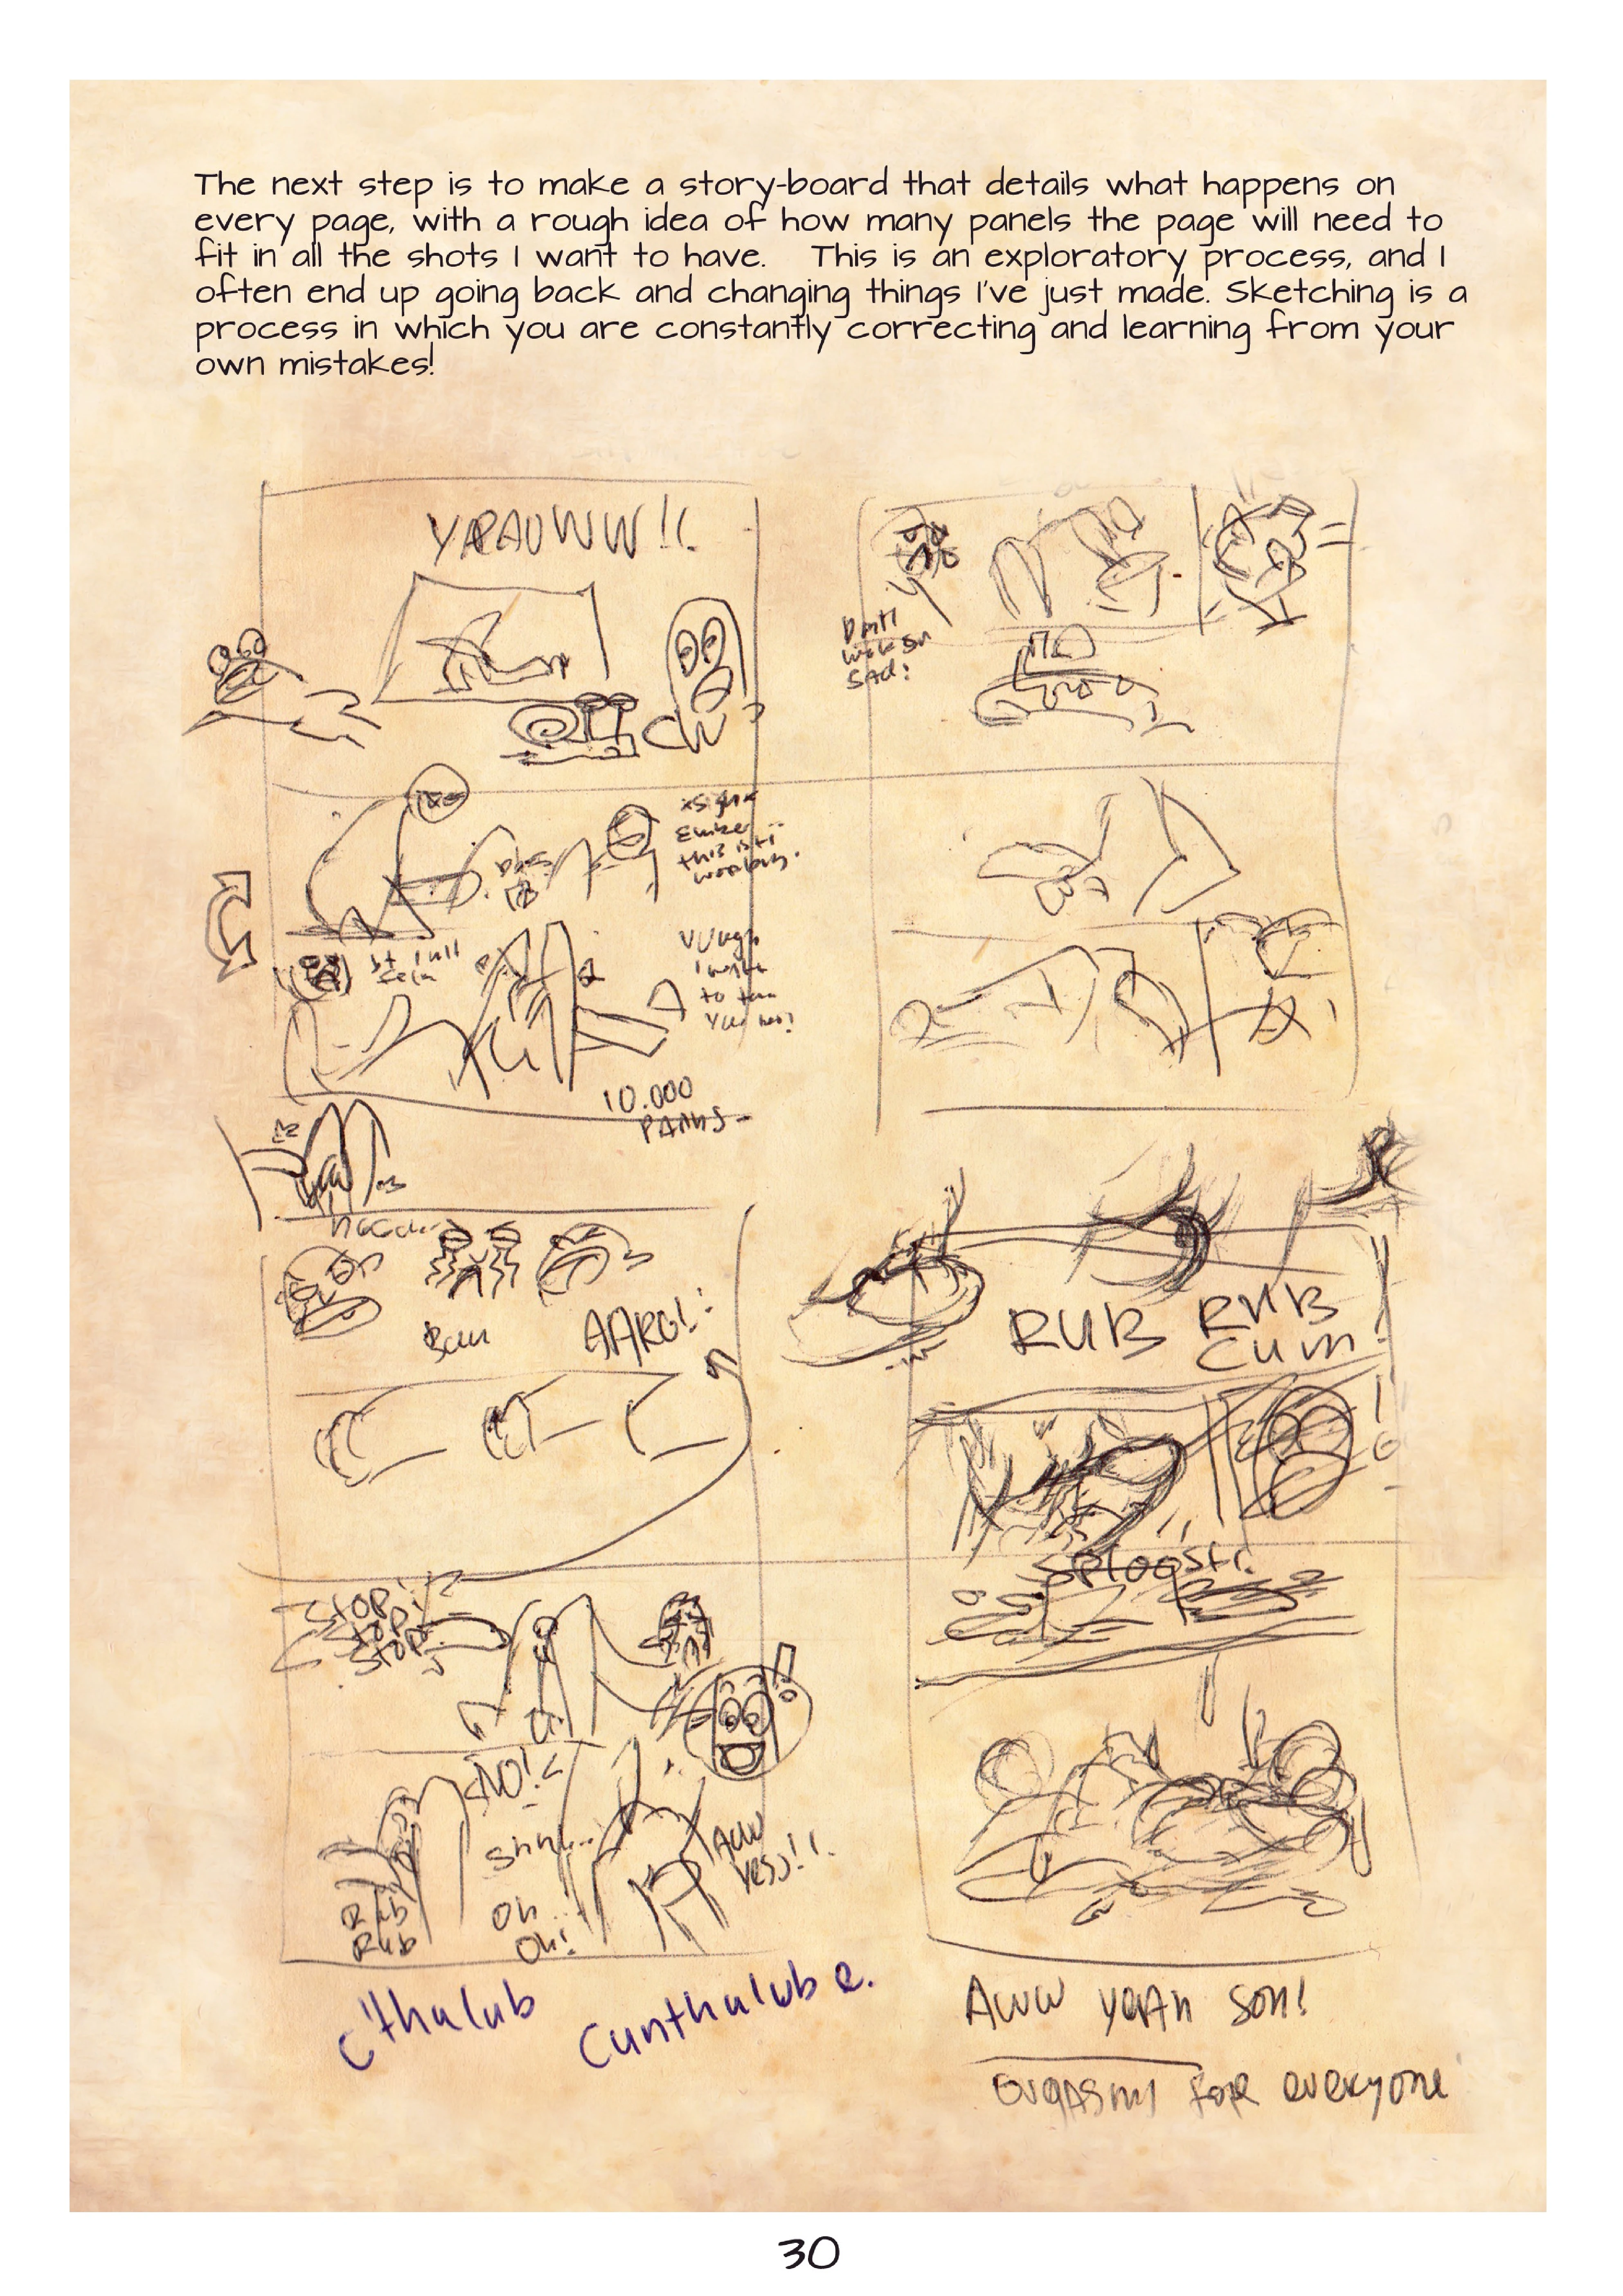 The next step is to make a story-board that details what happens on
every page, with a rough idea of how many panels the page will need to
fit in all the shots I want to have. This is an exploratory process, and I
often end up going back and changing things I've just made. Sketching is a
process in which you are constantly correcting and learning from your
own mistakes!
YARAUWW!!
10.000
AARG!
RUB RUB
CUM!
STOP!
STOP!
STOP
NO!
Shhh...
Oh...
Oh!
Rub
Rub
Aww
yess!!
SPLOOSH!
C'thalub
Cunthalube.
Aww yeah son!
orgasms for everyone
30